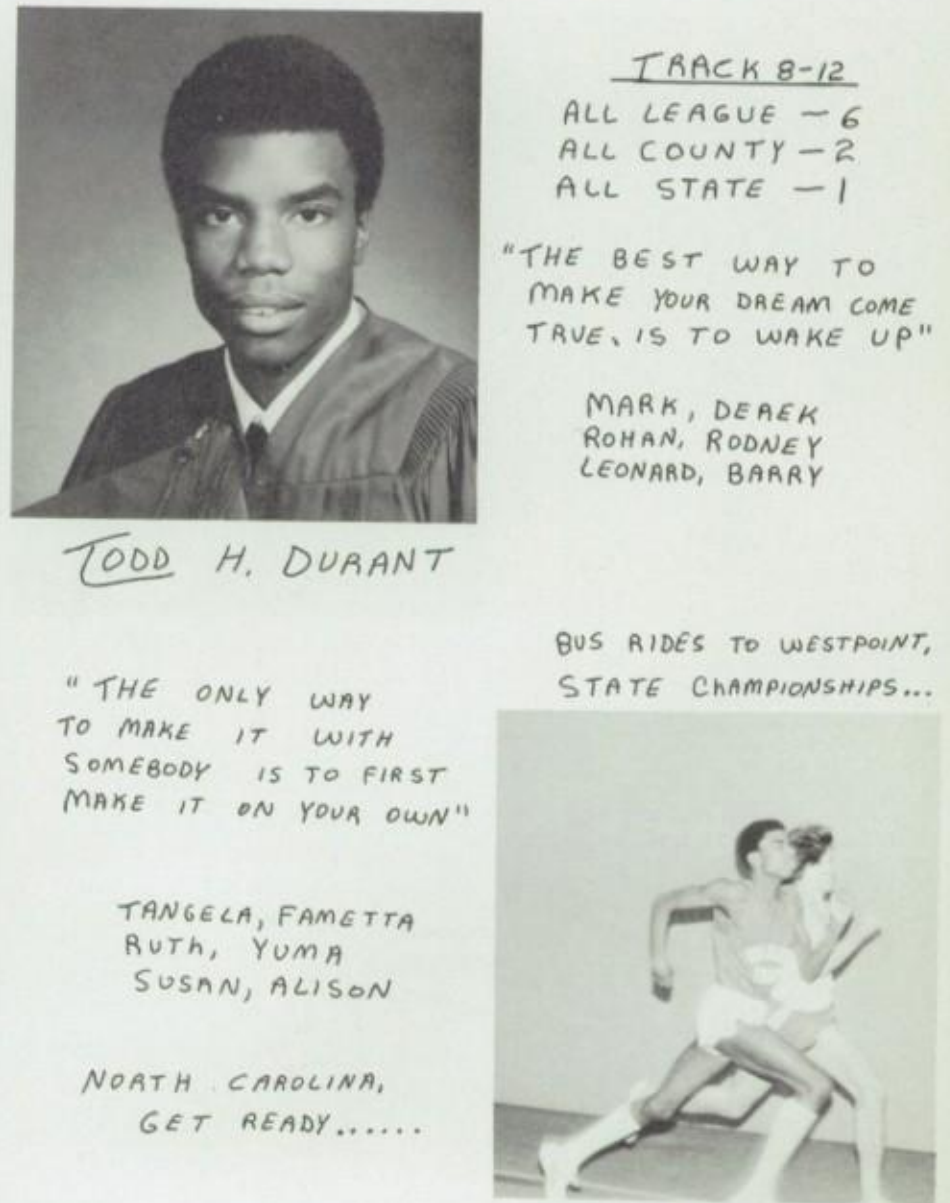 TRACK 8-12
ALL LEAGUE - 6
ALL COUNTY - 2
ALL STATE - 1
"THE BEST WAY TO
MAKE YOUR DREAM COME
TRUE. IS TO WAKE UP"
MARK, DEREK
ROHAN, RODNEY
LEONARD, BARRY
TODD H. DURANT
BUS RIDES TO WESTPOINT,
STATE CHAMPIONSHIPS...
"THE ONLY WAY
TO MAKE IT WITH
SOMEBODY IS TO FIRST
MAKE IT ON YOUR OWN"
TANGELA, FAMETTA
RUTH, YUMA
SUSAN, ALISON
NORTH CAROLINA,
GET READY......